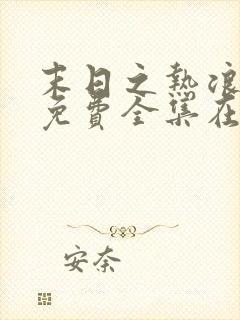 末日之热浪
免费全集在
安奈